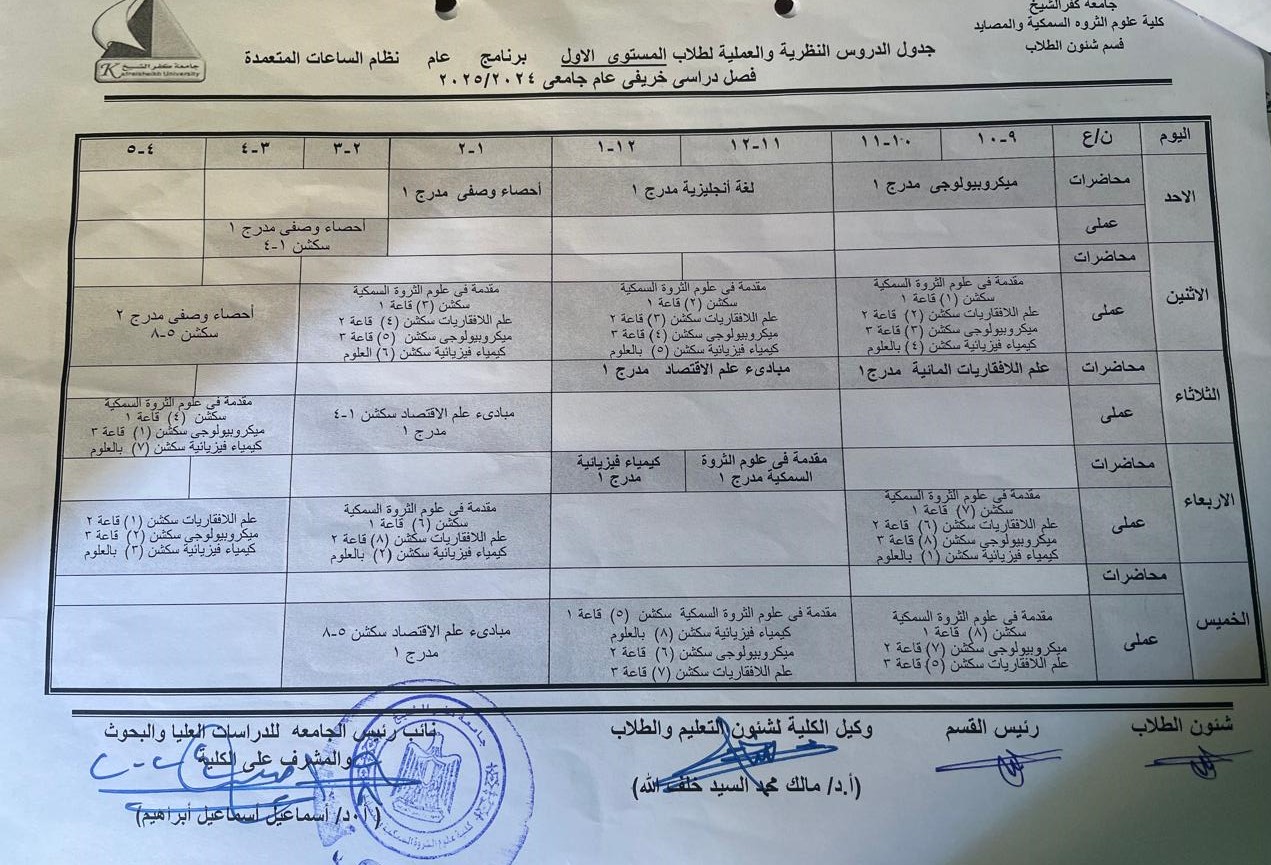 جامعة كفر الشيخ
كلية علوم الثروه السمكية والمصايد
قسم شئون الطلاب
جامعة كفر الشيخ
Kafrelsheikh University
جدول الدروس النظرية والعملية لطلاب المستوى الاول برنامج عام نظام الساعات المتعمدة
فصل دراسى خريفى عام جامعى ٢٠٢٥/٢٠٢٤
اليوم ن/ع ٩-١٠ ١٠-١١ ١١-١٢ ١٢-١ ١-٢ ٢-٣ ٣-٤ ٤-٥
الاحد
محاضرات
ميكروبيولوجى مدرج ١
لغة أنجليزية مدرج ١
أحصاء وصفى مدرج ١
عملى
أحصاء وصفى مدرج ١
سكشن ١-٤
الاثنين
محاضرات
عملى
مقدمة فى علوم الثروة السمكية
سكشن (١) قاعة ١
علم اللافقاريات سكشن (٢) قاعة ٢
ميكروبيولوجى سكشن (٣) قاعة ٣
كيمياء فيزيائية سكشن (٤) بالعلوم
مقدمة فى علوم الثروة السمكية
سكشن (٢) قاعة ١
علم اللافقاريات سكشن (٣) قاعة ٢
ميكروبيولوجى سكشن (٤) قاعة ٣
كيمياء فيزيائية سكشن (٥) بالعلوم
مقدمة فى علوم الثروة السمكية
سكشن (٣) قاعة ١
علم اللافقاريات سكشن (٤) قاعة ٢
ميكروبيولوجى سكشن (٥) قاعة ٣
كيمياء فيزيائية سكشن (٦) العلوم
أحصاء وصفى مدرج ٢
سكشن ٥-٨
الثلاثاء
محاضرات
علم اللافقاريات المائية مدرج١
مبادىء علم الاقتصاد مدرج ١
عملى
مبادىء علم الاقتصاد سكشن ١-٤
مدرج ١
مقدمة فى علوم الثروة السمكية
سكشن (٤) قاعة ١
ميكروبيولوجى سكشن (١) قاعة ٣
كيمياء فيزيائية سكشن (٧) بالعلوم
الاربعاء
محاضرات
مقدمة فى علوم الثروة
السمكية مدرج ١
كيمياء فيزيائية
مدرج ١
عملى
مقدمة فى علوم الثروة السمكية
سكشن (٧) قاعة ١
علم اللافقاريات سكشن (٦) قاعة ٢
ميكروبيولوجى سكشن (٨) قاعة ٣
كيمياء فيزيائية سكشن (١) بالعلوم
مقدمة فى علوم الثروة السمكية
سكشن (٦) قاعة ١
علم اللافقاريات سكشن (٨) قاعة ٢
كيمياء فيزيائية سكشن (٢) بالعلوم
علم اللافقاريات سكشن (١) قاعة ٢
ميكروبيولوجى سكشن (٢) قاعة ٣
كيمياء فيزيائية سكشن (٣) بالعلوم
الخميس
محاضرات
عملى
مقدمة فى علوم الثروة السمكية
سكشن (٨) قاعة ١
ميكروبيولوجى سكشن (٧) قاعة ٢
علم اللافقاريات سكشن (٥) قاعة ٣
مقدمة فى علوم الثروة السمكية سكشن (٥) قاعة ١
كيمياء فيزيائية سكشن (٨) بالعلوم
ميكروبيولوجى سكشن (٦) قاعة ٢
علم اللافقاريات سكشن (٧) قاعة ٣
مبادىء علم الاقتصاد سكشن ٥-٨
مدرج ١
شئون الطلاب
رئيس القسم
وكيل الكلية لشئون التعليم والطلاب
(أ.د/ مالك محمد السيد خلف الله)
نائب رئيس الجامعه للدراسات العليا والبحوث
والمشرف على الكلية
(أ.د/ أسماعيل أسماعيل أبراهيم)